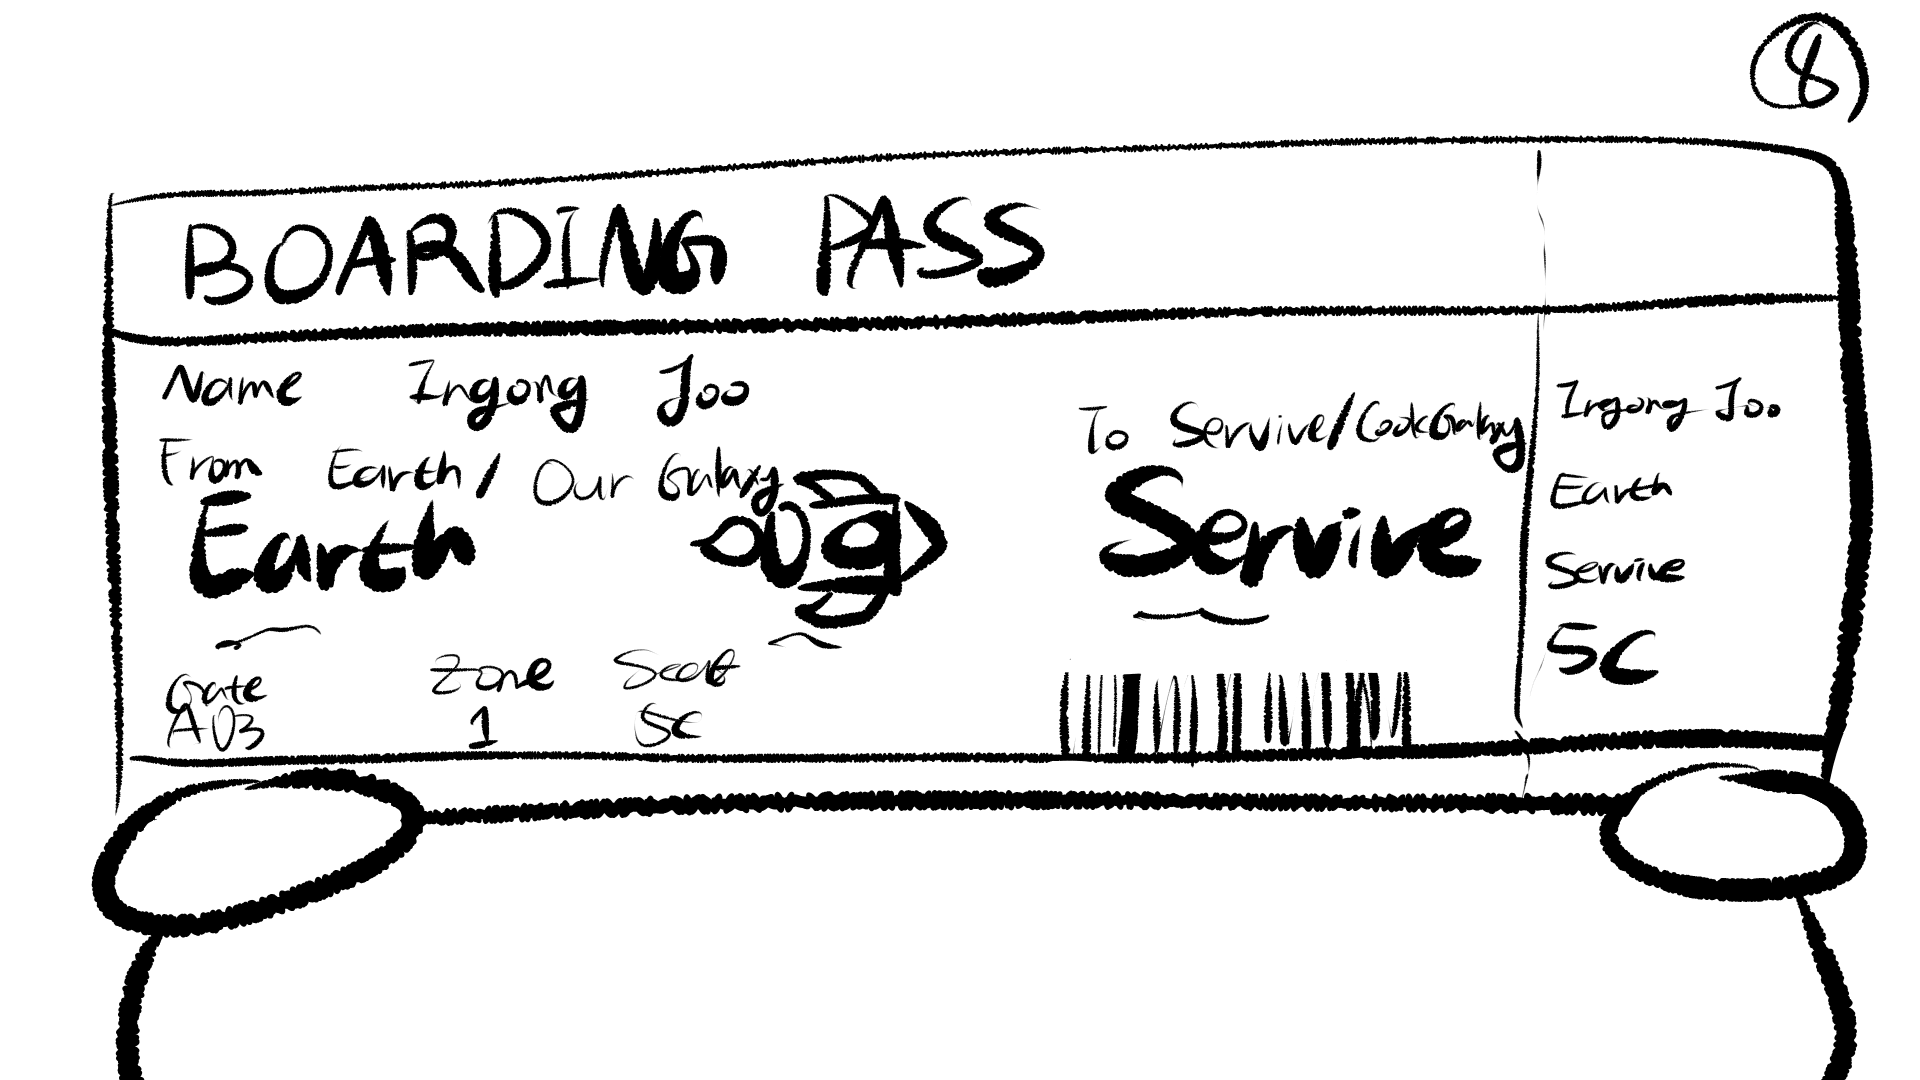 8
BOARDING PASS
Name Ingong Joo
From Earth / Our Galaxy
Earth
To Servive/CookGalaxy
Servive
Gate Zone Seat
A03 1 5C
Ingong Joo
Earth
Servive
5C